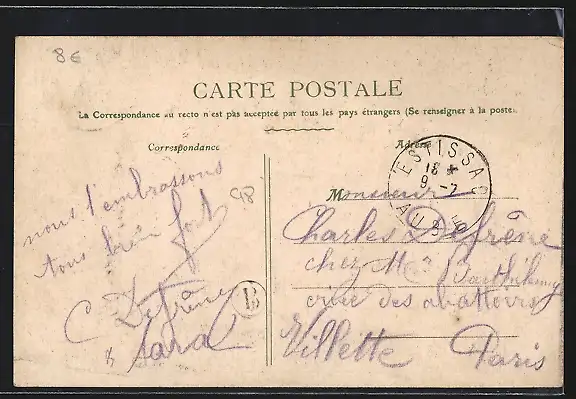 8€
CARTE POSTALE
La Correspondance au recto n'est pas acceptée par tous les pays étrangers (Se renseigner à la poste
Correspondance
Adresse
ESTISSAC
18 *
9 -7
AUBE
nous t'embrassons
tous bien fort
C Defrêne
B
98
Monsieur
Charles Defrêne
chez Mr Barthélemy
des abattoirs
Villette Paris